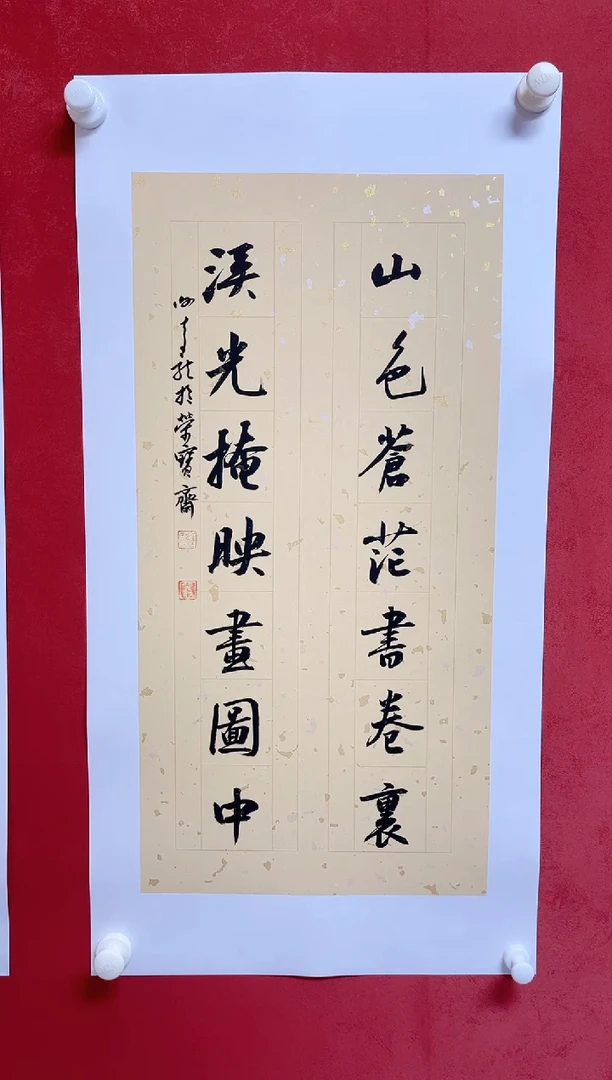 山色蒼茫書卷裏
溪光掩映畫圖中
於榮寶齋